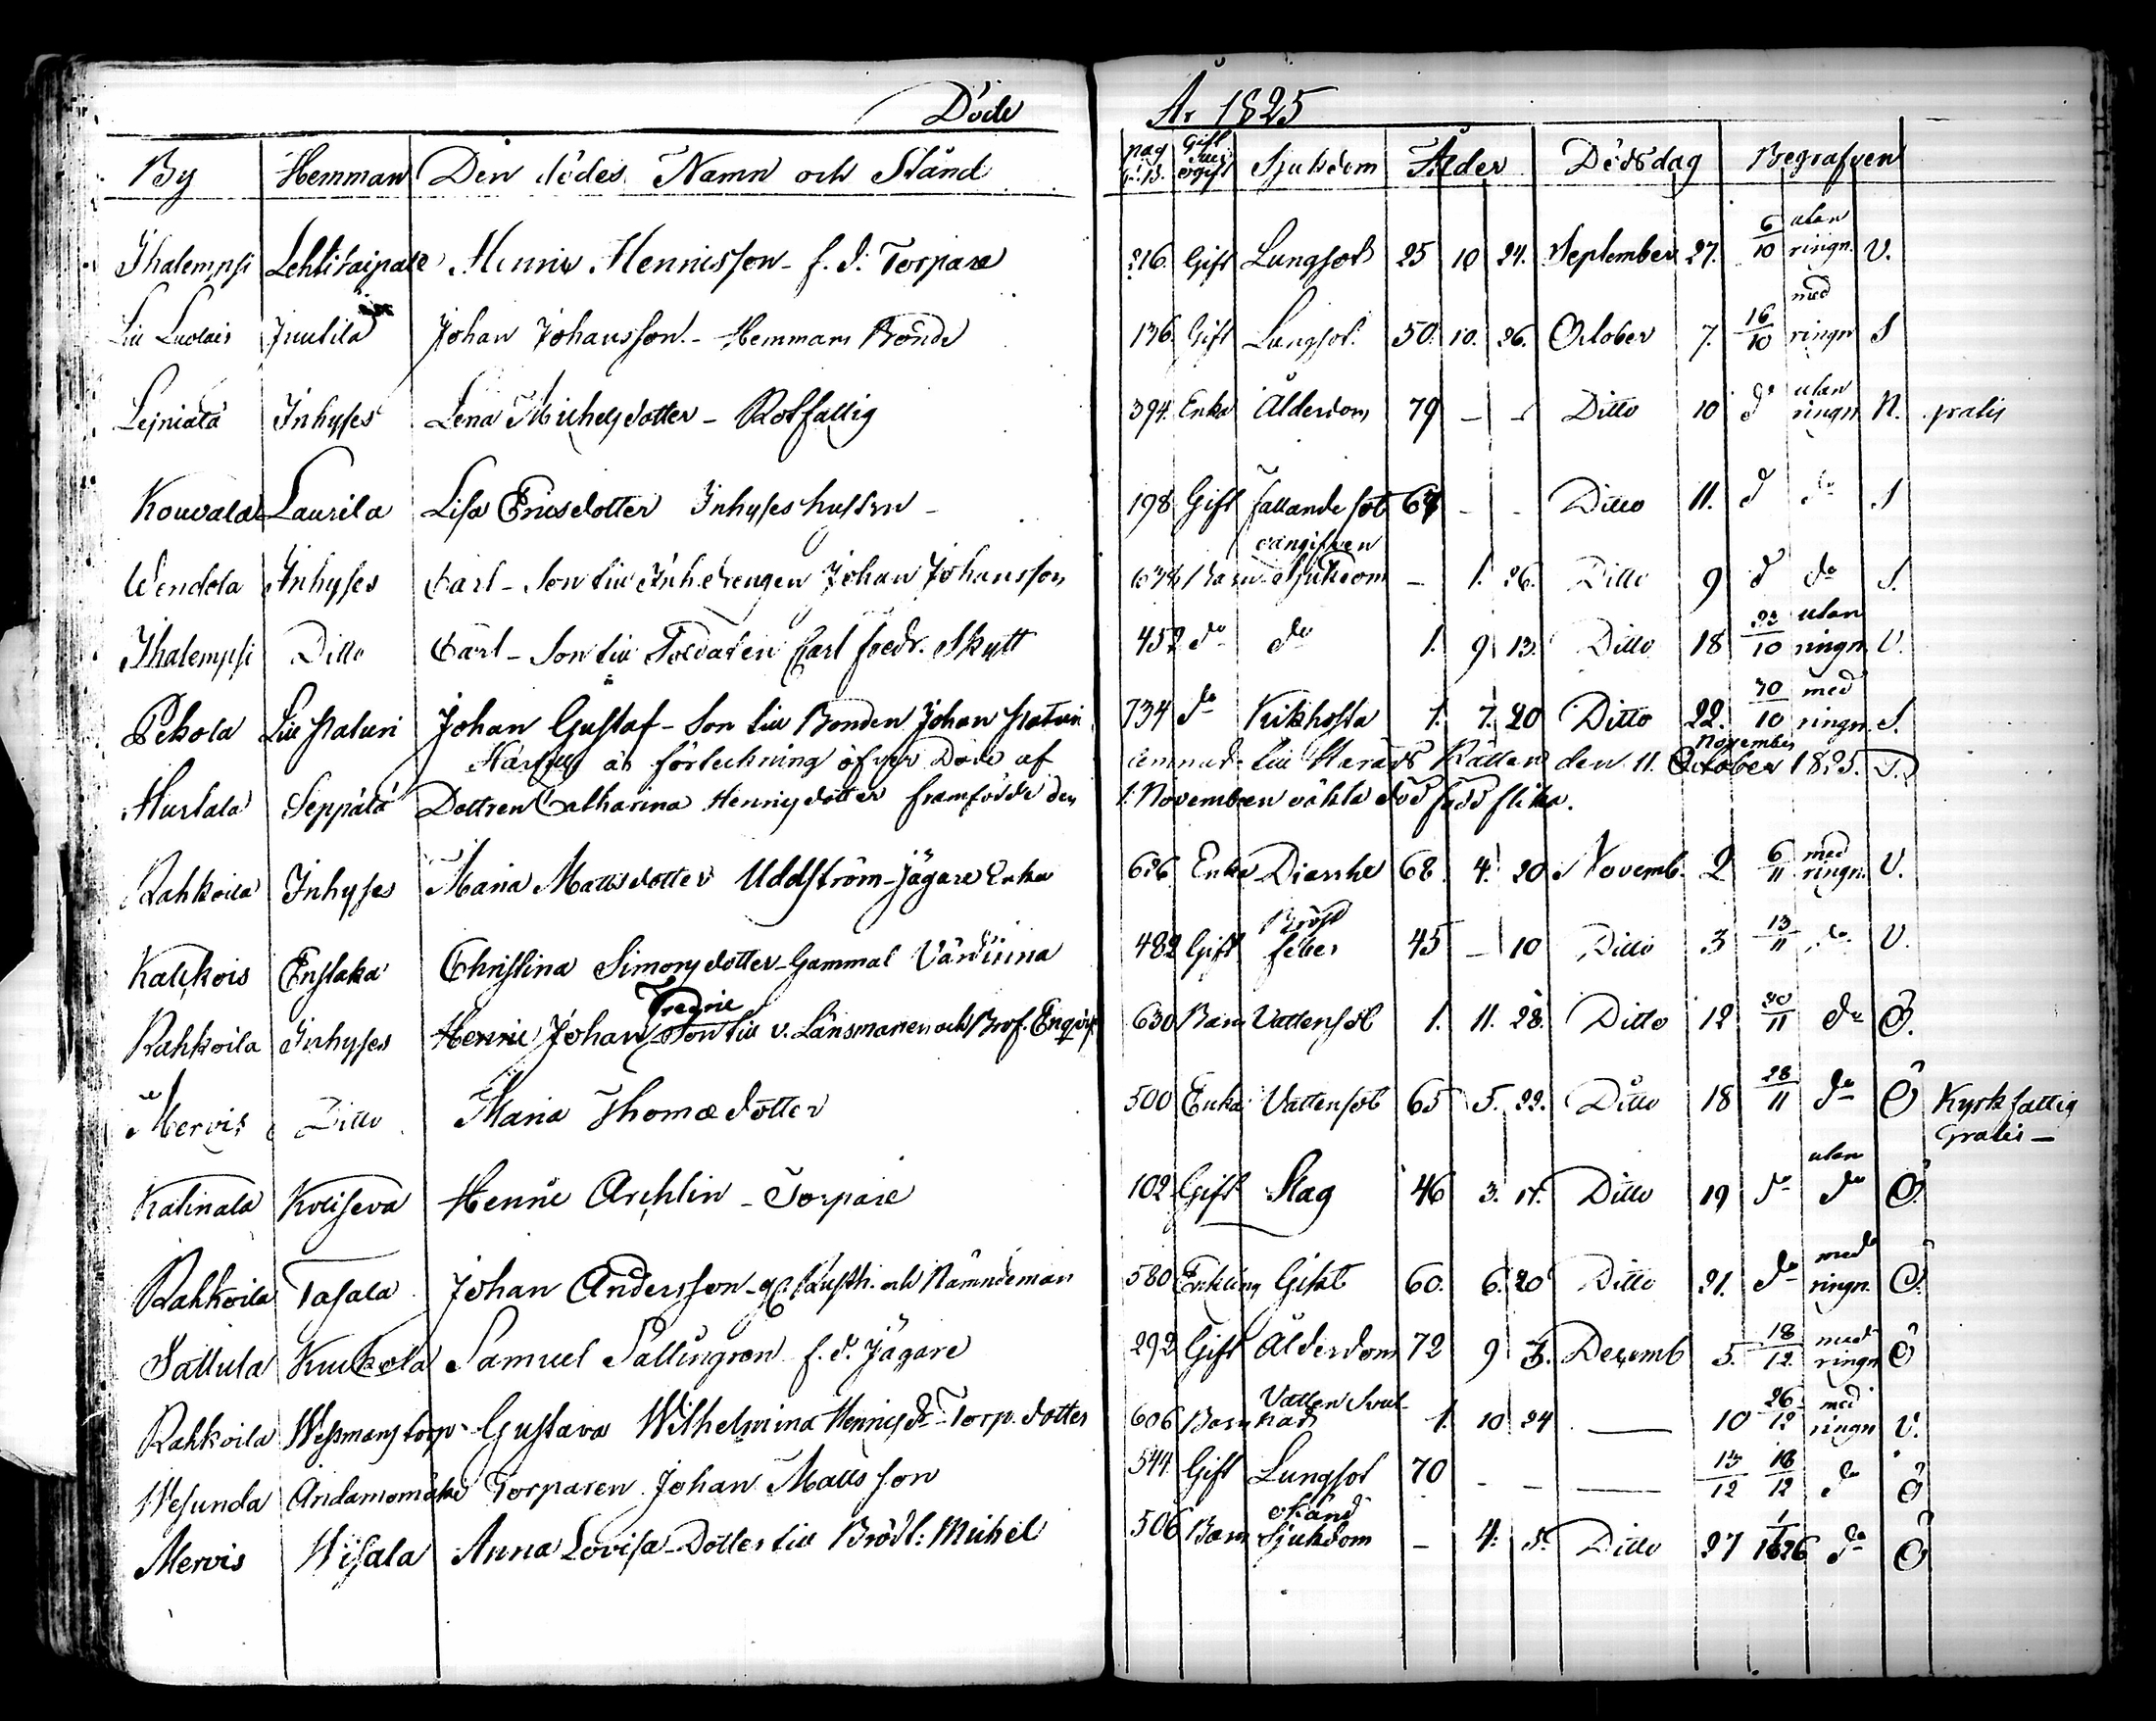 Döde År 1825
By Hemman Den dödes Namn och Stånd pag Gift Sjukdom Ålder Dödsdag Begrafven
Ihalempsi Lehtitaipale Henric Henricsson - f. d. Torpare 216. Gift Lungsot 25 10 24. September 27. 6/10 utan ringn. V.
Juutila Johan Johansson - Hemmans Bonde 136 Gift Lungsot. 50. 10. 26. October 7. 16/10 med ringn S
Inhyses Lena Michelsdotter - Rotfattig 394. Enka Ålderdom 79 - - Ditto 10 do utan ringn N. gratis
Kouvala Laurila Lisa Ericsdotter Inhyses hustru - 198 Gift fallande sot 67 - - Ditto 11. d do S
Wendola Inhyses Carl - Son till Inh. drengen Johan Johansson Barn oangifven Sjukdom - 1. 26. Ditto 9 d do S.
Ihalempsi Ditto Carl - Son till Soldaten Carl Fredr. Skytt 452 do do 1. 9 13. Ditto 18 23/10 utan ringn V.
Pekola Johan Gustaf - Son till Bonden Johan 734 do Kikhosta 1. 7. 20 Ditto 22. 30/10 med ringn S.
är förteckning öfver Döde af lemnad till Härads Rätten den 11. October November 1825.
Hurtala Seppälä Dottren Catharina Henricsdotter framfödde den 1. November oäkta död född flicka.
Rahkoila Inhyses Maria Mattsdotter Uddström - Jägare Enka 626 Enka Diarrhe 68. 4. 20. Novemb. 2 6/11 med ringn. V.
Katiskois Enstaka Christina Simonsdotter - Gammal Värdinna 482 Gift Bröst feber 45 - 10 Ditto 3 13/11 do V.
Rahkoila Inhyses Henric Johan Fredric Son till v. Länsmannen och Prof. Enqvist 630 Barn Vattensot 1. 11. 28. Ditto 12 20/11 do Ö.
Mervis Ditto Maria Thomædotter 500 Enka Vattensot 65 5. 22. Ditto 18 28/11 do Ö Kyrk fattig
Gratis -
Katinala Henric Archlin - Torpare 102 Gift Slag 46 3. 17. Ditto 19 do utan do Ö.
Rahkoila Tasala Johan Andersson - och Nämndeman 580 Enkling Gikt 60. 6. 20 Ditto 21. do med ringn. Ö.
Sattula Kuckola Samuel Sallingren f. d. Jägare 292 Gift Ålderdom 72 9 3. Decemb 5. 18/12 med ringn Ö
Rahkoila Wessmans torp Gustava Wilhelmina Henricsdr - Torp. dotter 606 Barn Vatten Svul-nad 1. 10 24 — 10 26/12 med ringn V.
Wesunda Andamomäki Torparen Johan Mattsson 544. Gift Lungsot 70 - - — 13/12 18/12 do Ö
Mervis Wisala Anna Lovisa - Dotter till Brödl: Michel 506 Barn okänd Sjukdom - 4. 5. Ditto 27 1/1 1826 do Ö